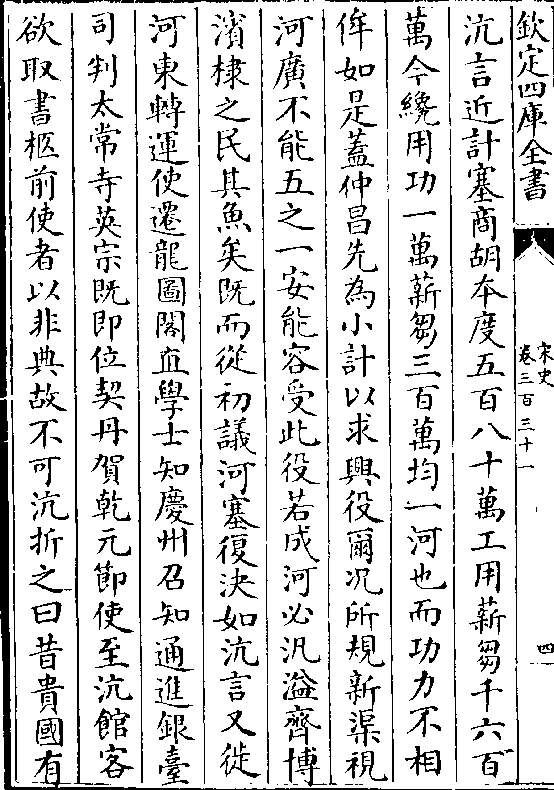 欽定四庫全書
宋史
卷三百三十一
四
沆言近計塞商胡本度五百八十萬工用薪芻千六百
萬今纔用功一萬薪芻三百萬均一河也而功力不相
侔如是蓋仲昌先為小計以求興役爾況所規新渠視
河廣不能五之一安能容受此役若成河必汎溢齊博
濱棣之民其魚矣既而從初議河塞復決如沆言又徙
河東轉運使遷龍圖閣直學士知慶州召知通進銀臺
司判太常寺英宗既即位契丹賀乾元節使至沆館客
欲取書柩前使者以非典故不可沆折之曰昔貴國有